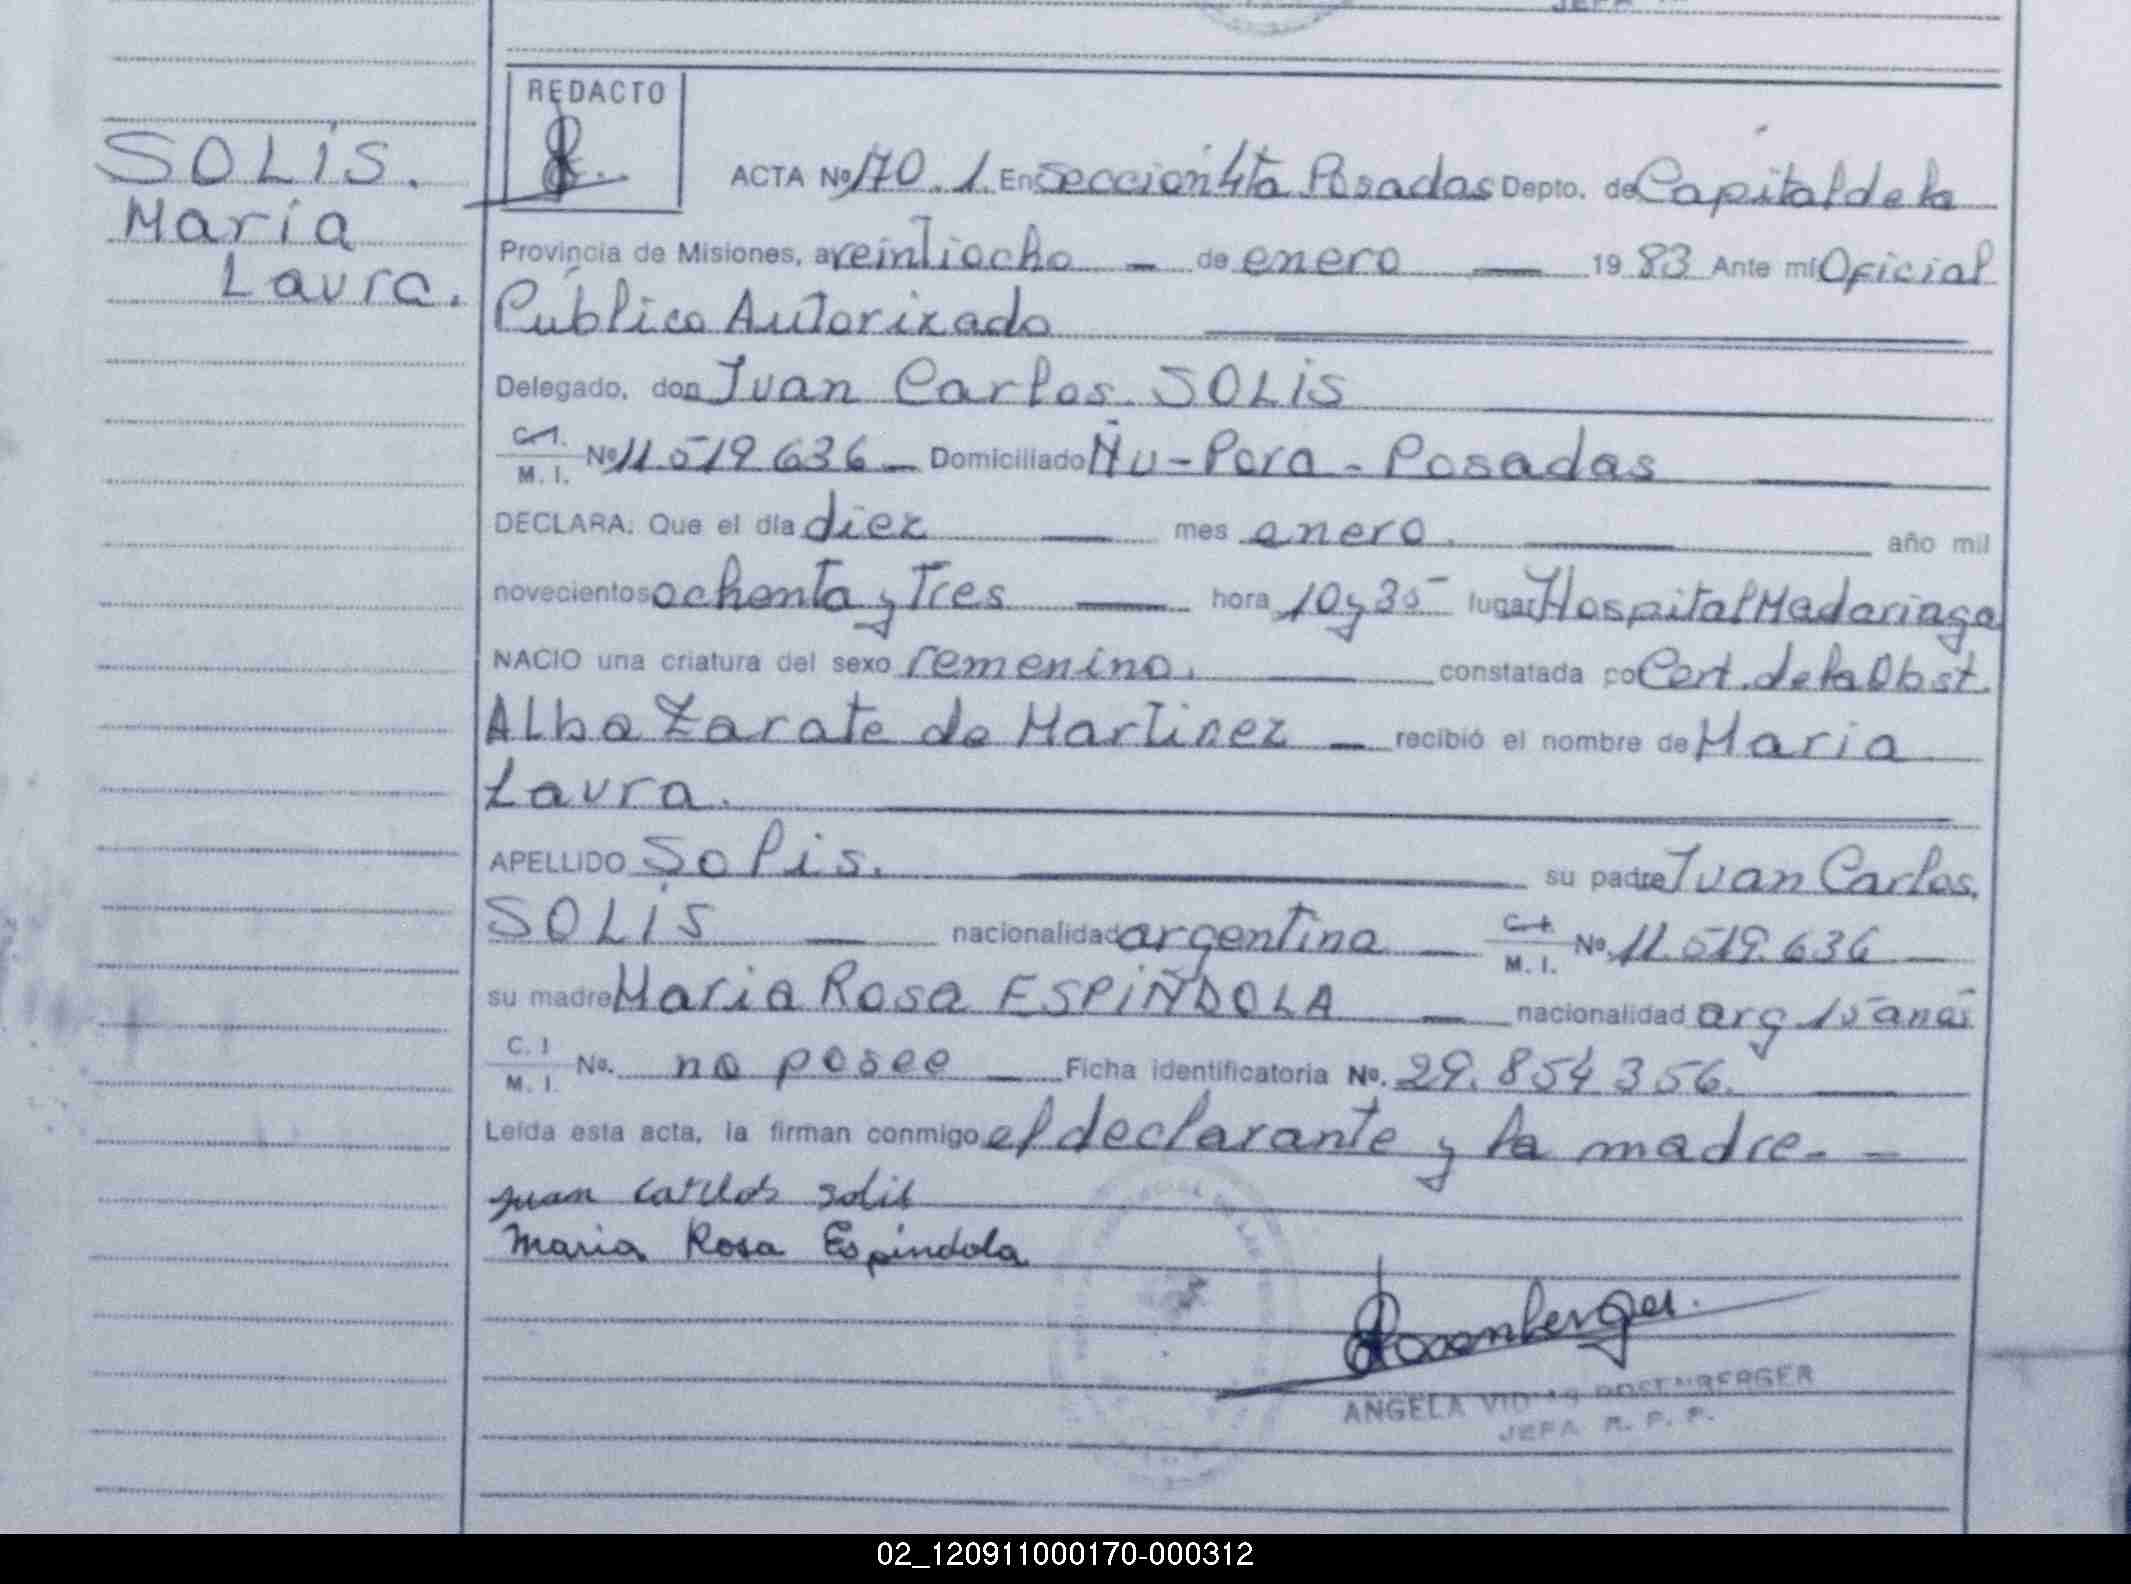 JEFA
REDACTO
SOLIS.
Maria
Laura.
ACTA Nº 170. 1. En Seccion 4ta Posadas Depto. de Capital de la
Provincia de Misiones, a veintiocho - de enero — 1983 Ante mi Oficial
Público Autorizado
Delegado, don Juan Carlos SOLIS
C.I. / M. I. Nº 11.519.636 - Domiciliado Ñu-Pora - Posadas
DECLARA: Que el día diez — mes enero. — año mil
novecientos ochenta y Tres — hora 10 y 35 lugar Hospital Madariaga
NACIO una criatura del sexo femenino. — constatada po Cert. de la Obst.
Alba Zarate de Martinez — recibió el nombre de Maria
Laura.
APELLIDO Solis. — su padre Juan Carlos.
SOLIS — nacionalidad argentina — C.I. / M. I. Nº. 11.519.636 —
su madre Maria Rosa ESPIÑDOLA — nacionalidad arg 15 anos
C. I / M. I. Nº. no posee — Ficha identificatoria Nº. 29.854356. —
Leída esta acta, la firman conmigo el declarante y la madre. -
Juan carlos solis
Maria Rosa Espindola
Rosemberger.
ANGELA ROSEMBERGER
JEFA R. P. P.
02_120911000170-000312